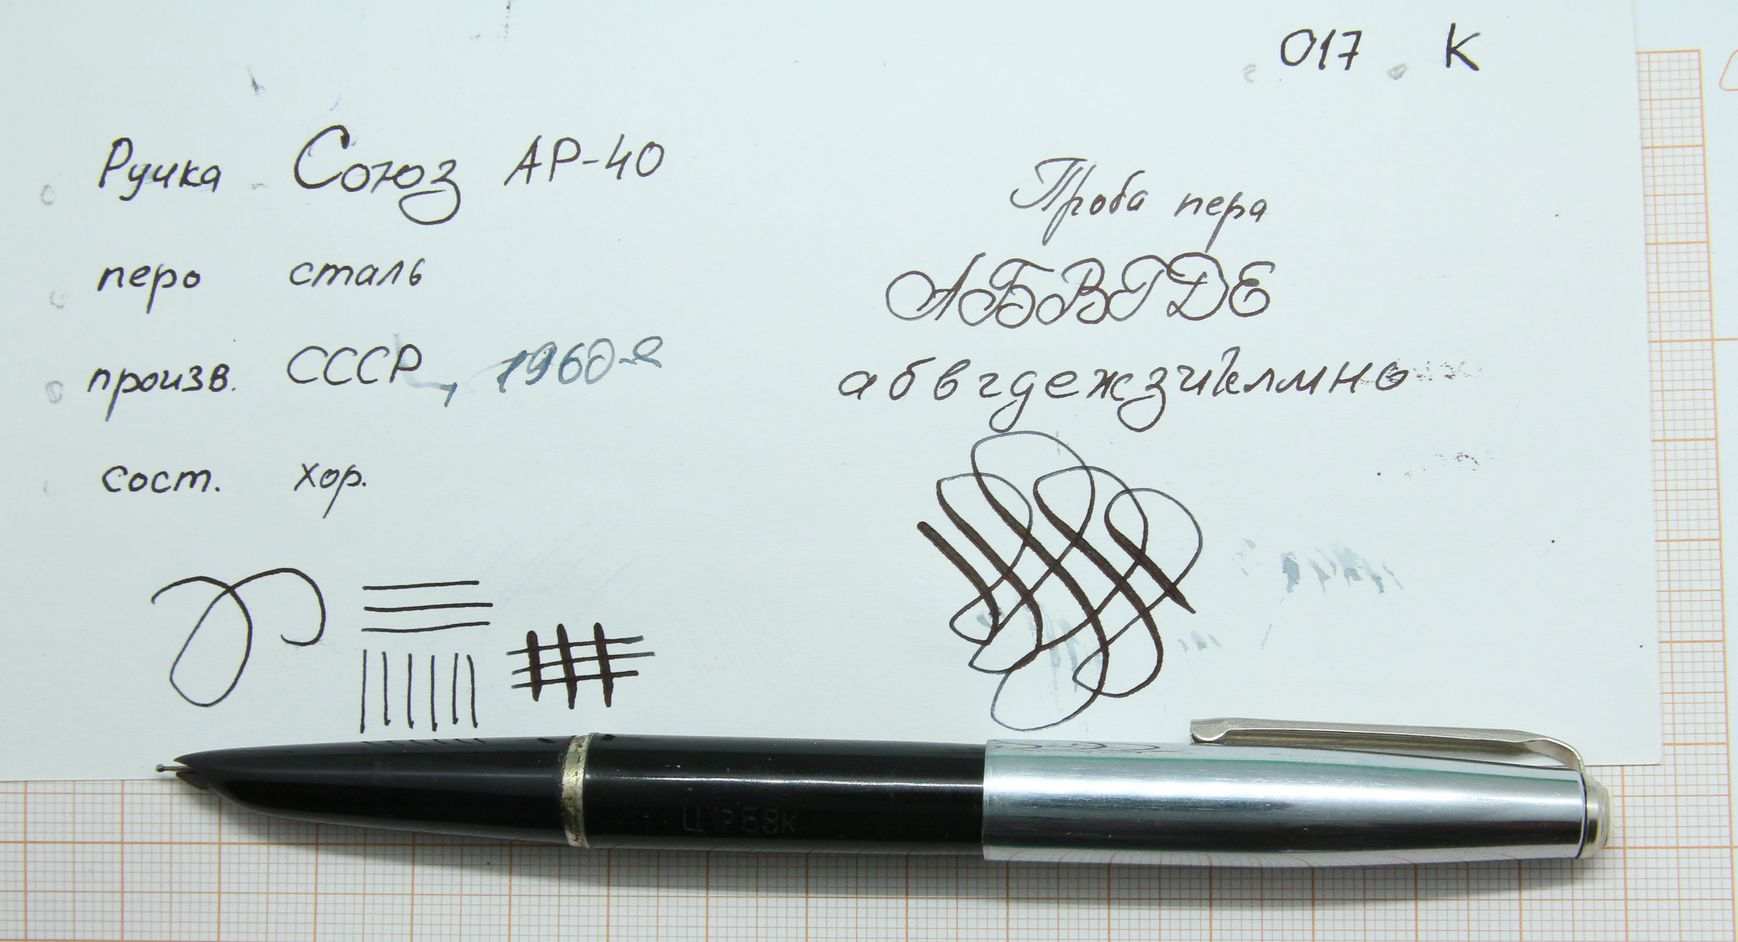 017 К
Ручка Союз АР-40
перо сталь
произв. СССР, 1960-е
сост. хор.
Проба пера
АБВГДЕ
абвгдежзиклмно